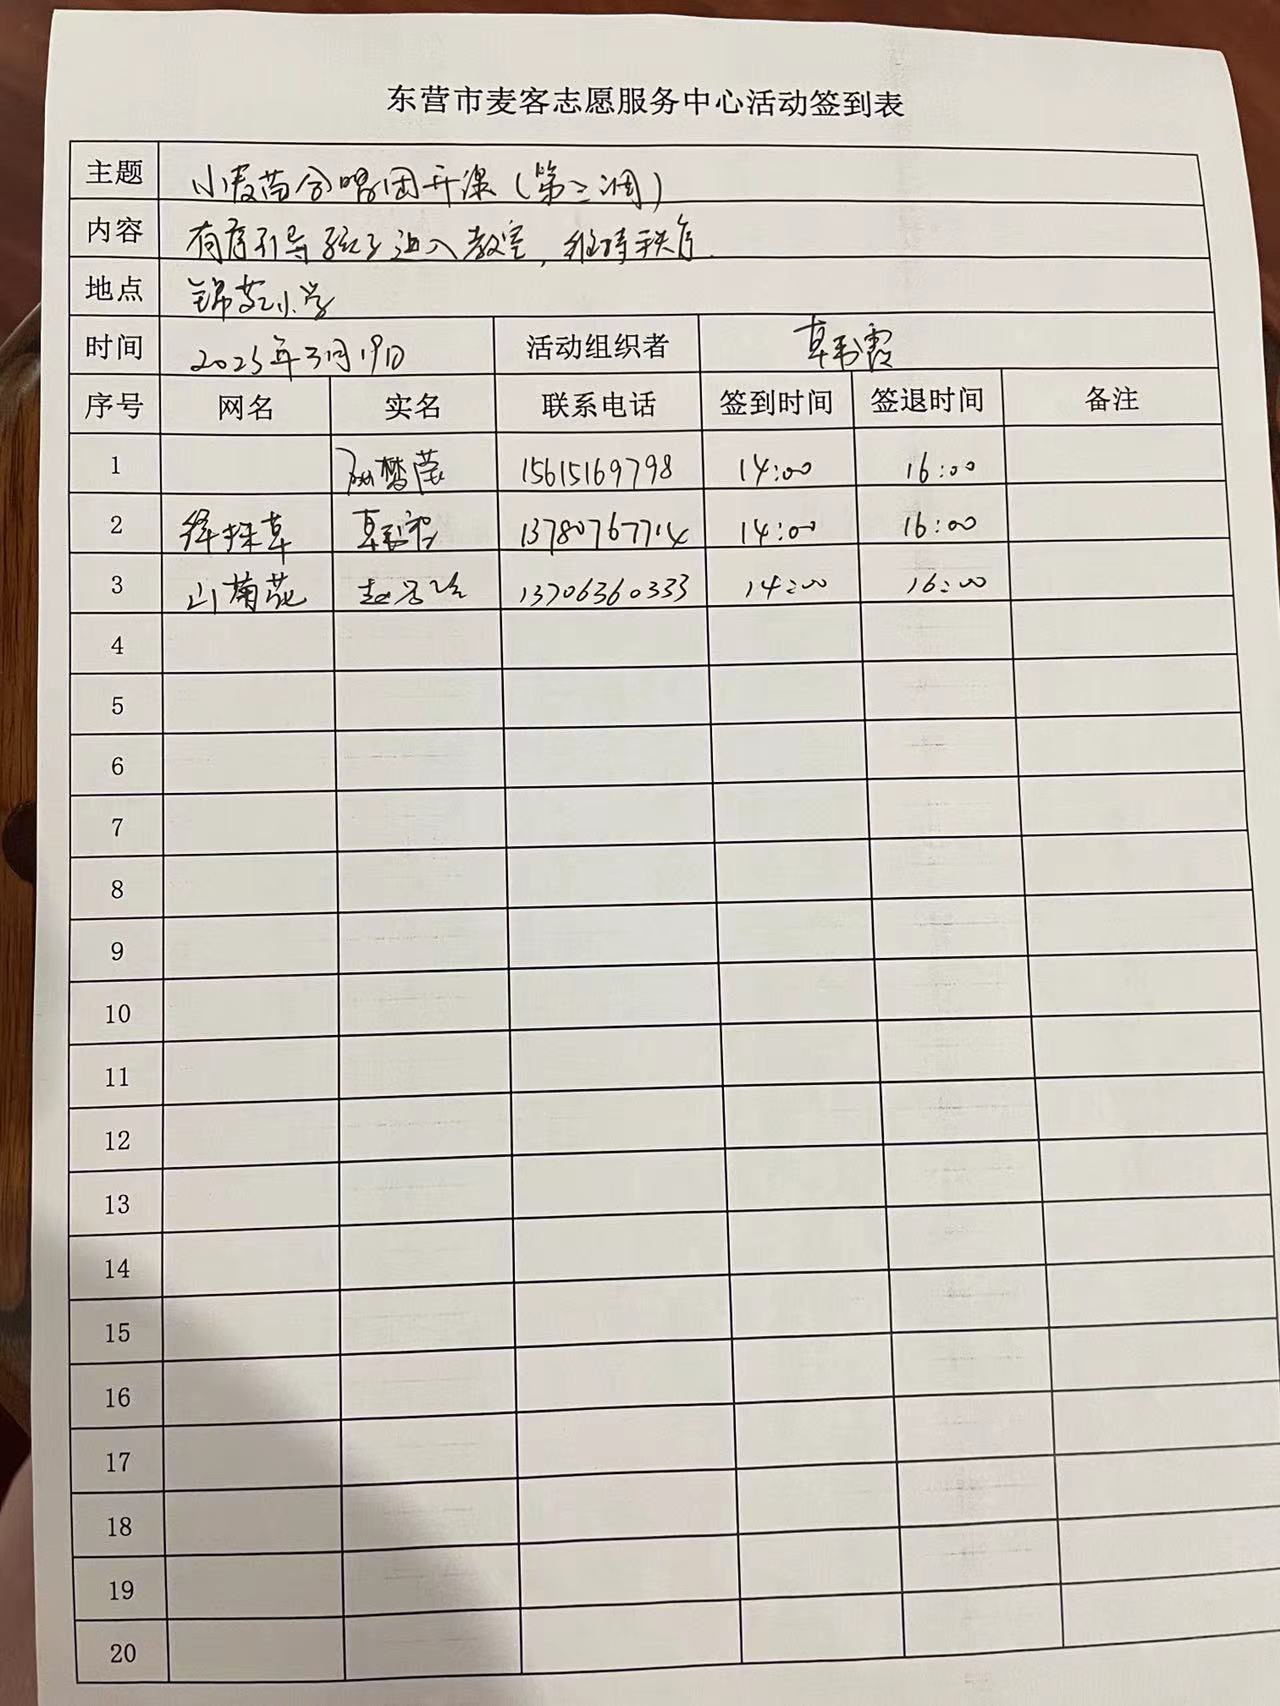 东营市麦客志愿服务中心活动签到表
主题 小麦苗合唱团开课(第二周)
内容 有序引导孩子进入教室,维持秩序.
地点 锦苑小学
时间 2025年3月19日 活动组织者
序号 网名 实名 联系电话 签到时间 签退时间 备注
1 梦莹 15615169798 14:00 16:00
2 绛珠草 13780767714 14:00 16:00
3 山菊花 赵 13706360333 14:00 16:00
4
5
6
7
8
9
10
11
12
13
14
15
16
17
18
19
20